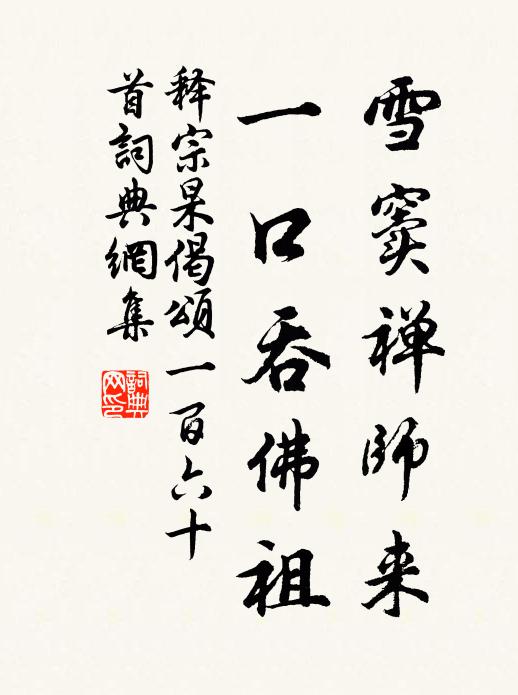 雪竇禅師来
一口吞佛祖
释宗杲偈頌一百六十
首詞典網集
詞典
网印